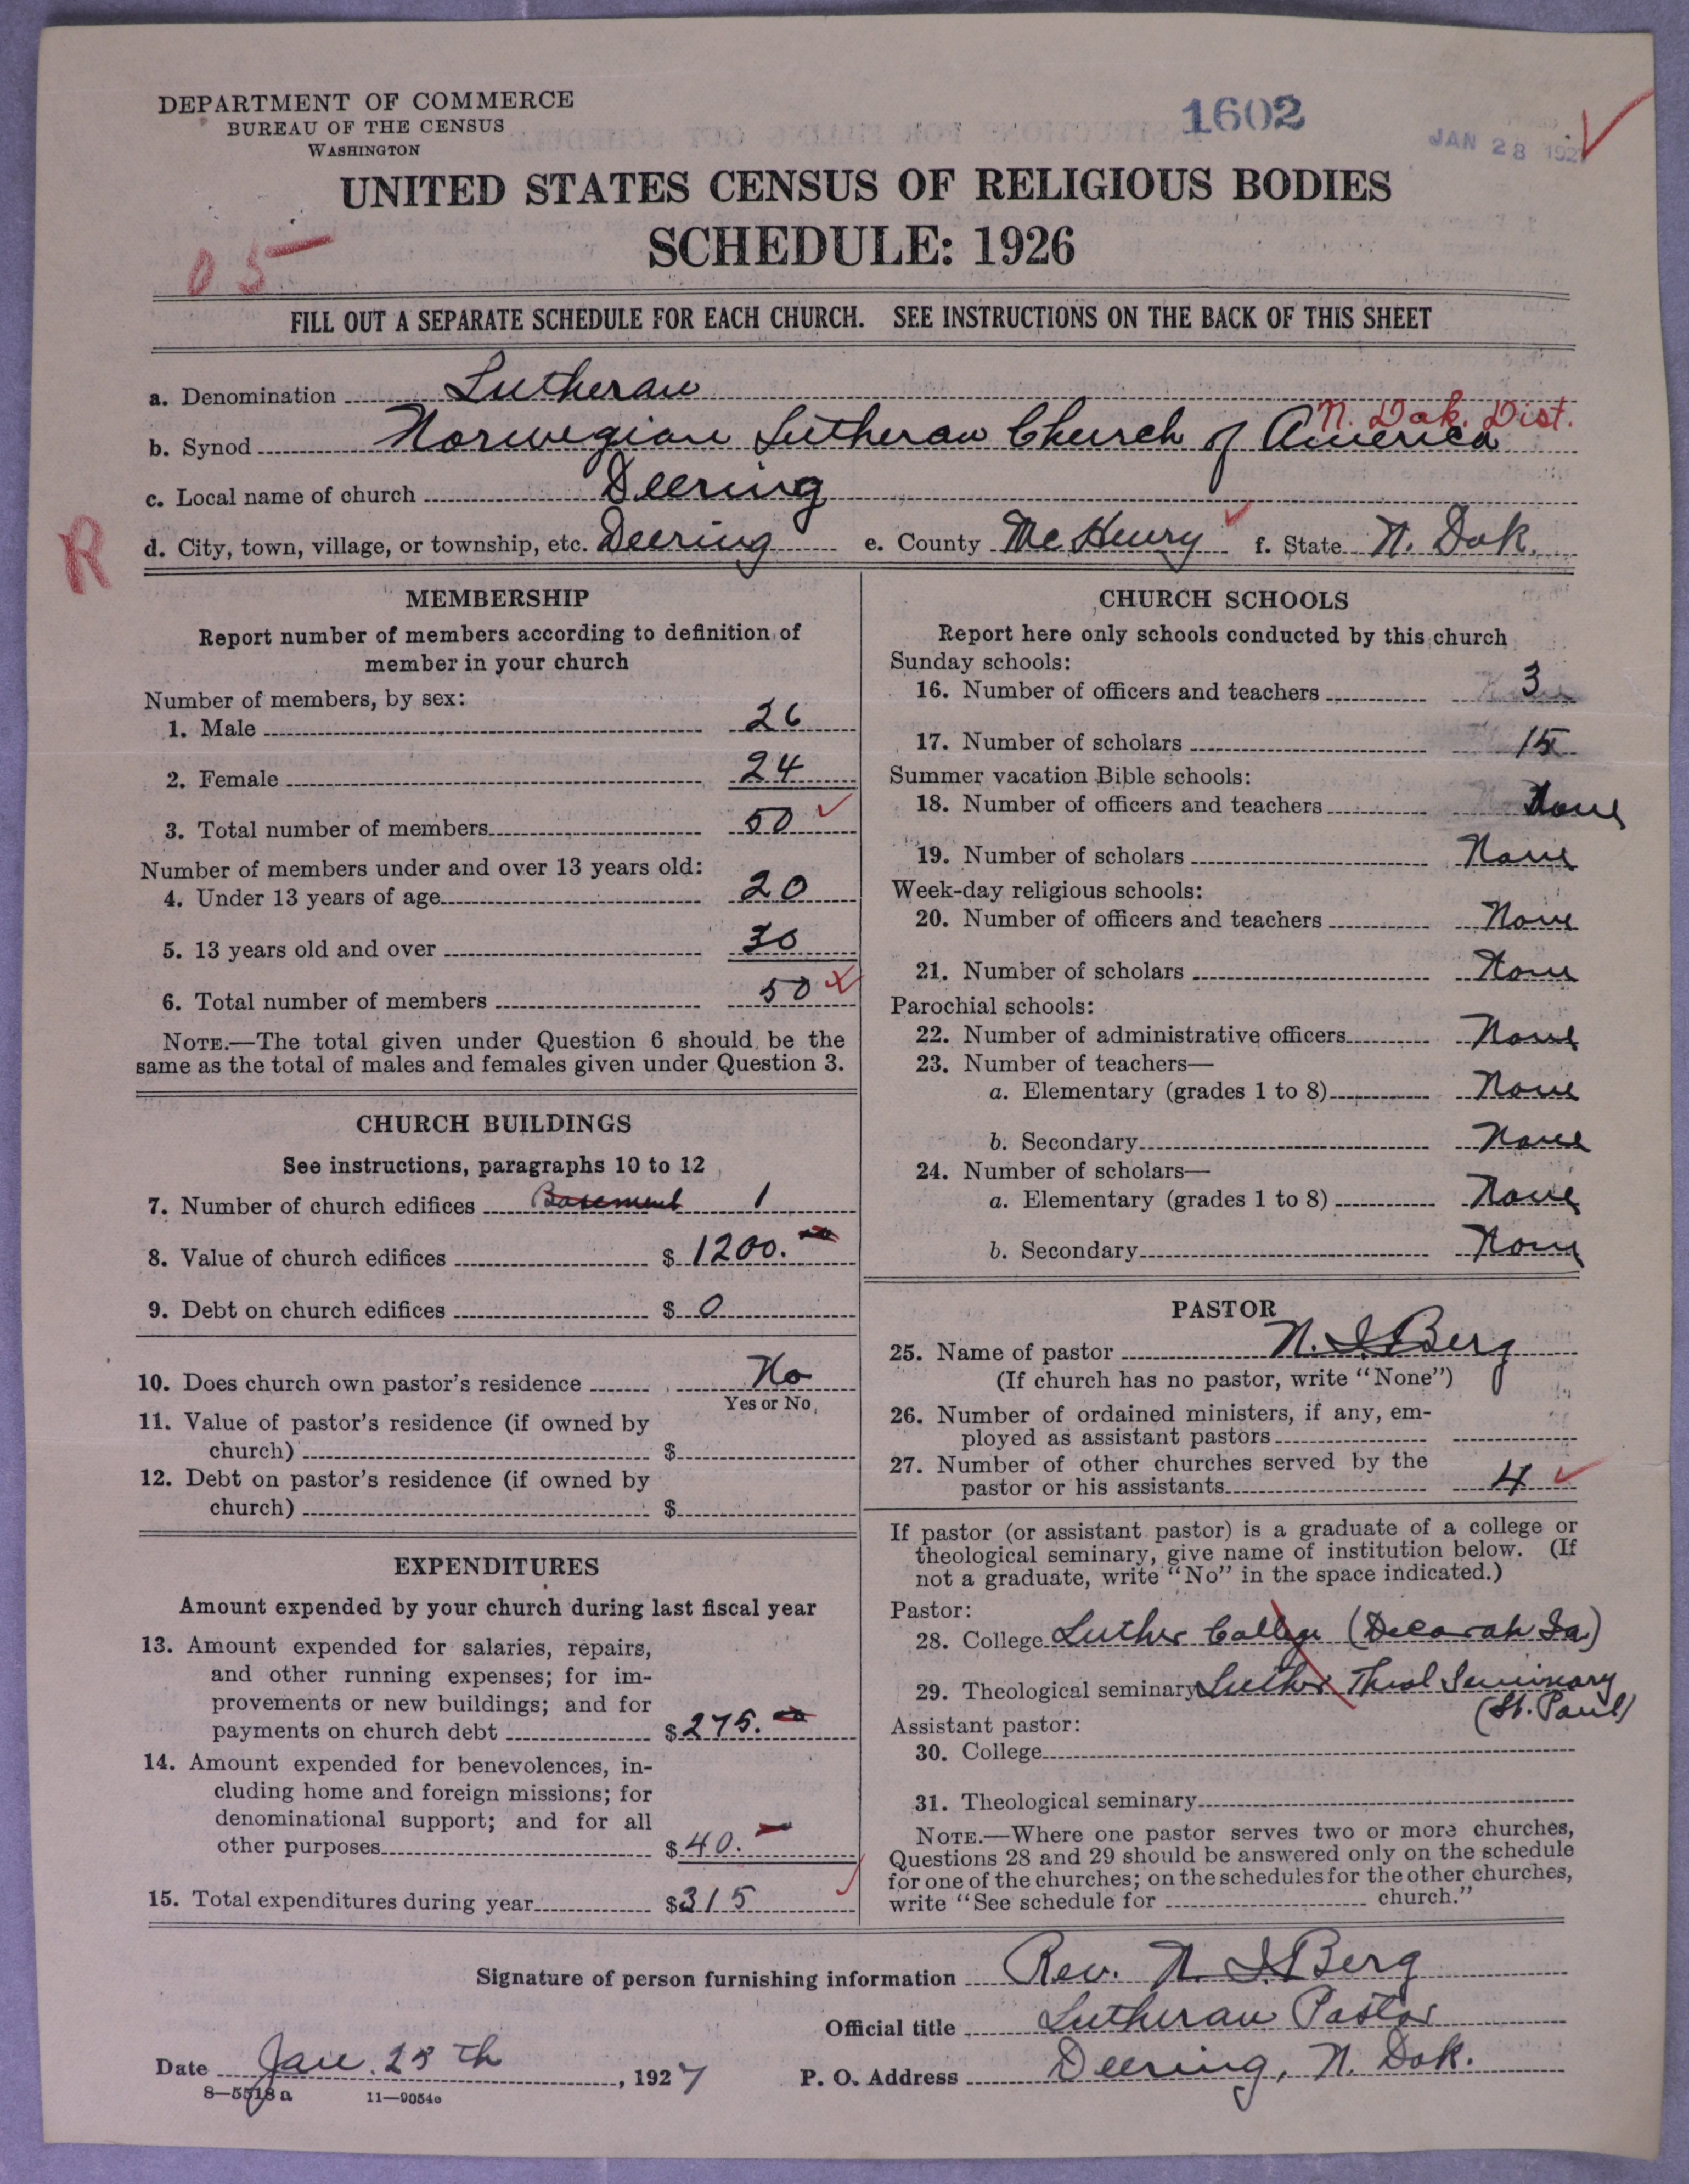 DEPARTMENT OF COMMERCE
BUREAU OF THE CENSUS
WASHINGTON
1602
JAN 28 1927
UNITED STATES CENSUS OF RELIGIOUS BODIES
SCHEDULE: 1926
05
FILL OUT A SEPARATE SCHEDULE FOR EACH CHURCH. SEE INSTRUCTIONS ON THE BACK OF THIS SHEET
a. Denomination Lutheran
N. Dak. Dist.
b. Synod Norwegian Lutheran Church of America
c. Local name of church Deering
R
d. City, town, village, or township, etc. Deering e. County McHenry f. State N. Dak.
MEMBERSHIP
Report number of members according to definition of
member in your church
Number of members, by sex:
1. Male 26
2. Female 24
3. Total number of members 50
Number of members under and over 13 years old:
4. Under 13 years of age 20
5. 13 years old and over 30
6. Total number of members 50
NOTE.—The total given under Question 6 should be the
same as the total of males and females given under Question 3.
CHURCH BUILDINGS
See instructions, paragraphs 10 to 12
7. Number of church edifices Basement 1
8. Value of church edifices $ 1200.
9. Debt on church edifices $ 0
10. Does church own pastor's residence No
Yes or No
11. Value of pastor's residence (if owned by
church) $
12. Debt on pastor's residence (if owned by
church) $
EXPENDITURES
Amount expended by your church during last fiscal year
13. Amount expended for salaries, repairs,
and other running expenses; for im-
provements or new buildings; and for
payments on church debt $ 275.
14. Amount expended for benevolences, in-
cluding home and foreign missions; for
denominational support; and for all
other purposes $ 40.
15. Total expenditures during year $ 315
CHURCH SCHOOLS
Report here only schools conducted by this church
Sunday schools:
16. Number of officers and teachers 3
17. Number of scholars 15
Summer vacation Bible schools:
18. Number of officers and teachers None
19. Number of scholars None
Week-day religious schools:
20. Number of officers and teachers None
21. Number of scholars None
Parochial schools:
22. Number of administrative officers None
23. Number of teachers—
a. Elementary (grades 1 to 8) None
b. Secondary None
24. Number of scholars—
a. Elementary (grades 1 to 8) None
b. Secondary None
PASTOR
25. Name of pastor N. I. Berg
(If church has no pastor, write "None")
26. Number of ordained ministers, if any, em-
ployed as assistant pastors
27. Number of other churches served by the
pastor or his assistants 4
If pastor (or assistant pastor) is a graduate of a college or
theological seminary, give name of institution below. (If
not a graduate, write "No" in the space indicated.)
Pastor:
28. College Luther College (Decorah Ia)
29. Theological seminary Luther Theol Seminary
(St. Paul)
Assistant pastor:
30. College
31. Theological seminary
NOTE.—Where one pastor serves two or more churches,
Questions 28 and 29 should be answered only on the schedule
for one of the churches; on the schedules for the other churches,
write "See schedule for church."
Signature of person furnishing information Rev. N. I. Berg
Official title Lutheran Pastor
Date Jan. 25th, 1927 P. O. Address Deering, N. Dak.
8—5518 a 11—9054c